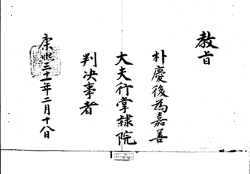 敎旨
朴慶後爲嘉善
大夫行掌隷院
判決事者
康熙三十一年二月十八日